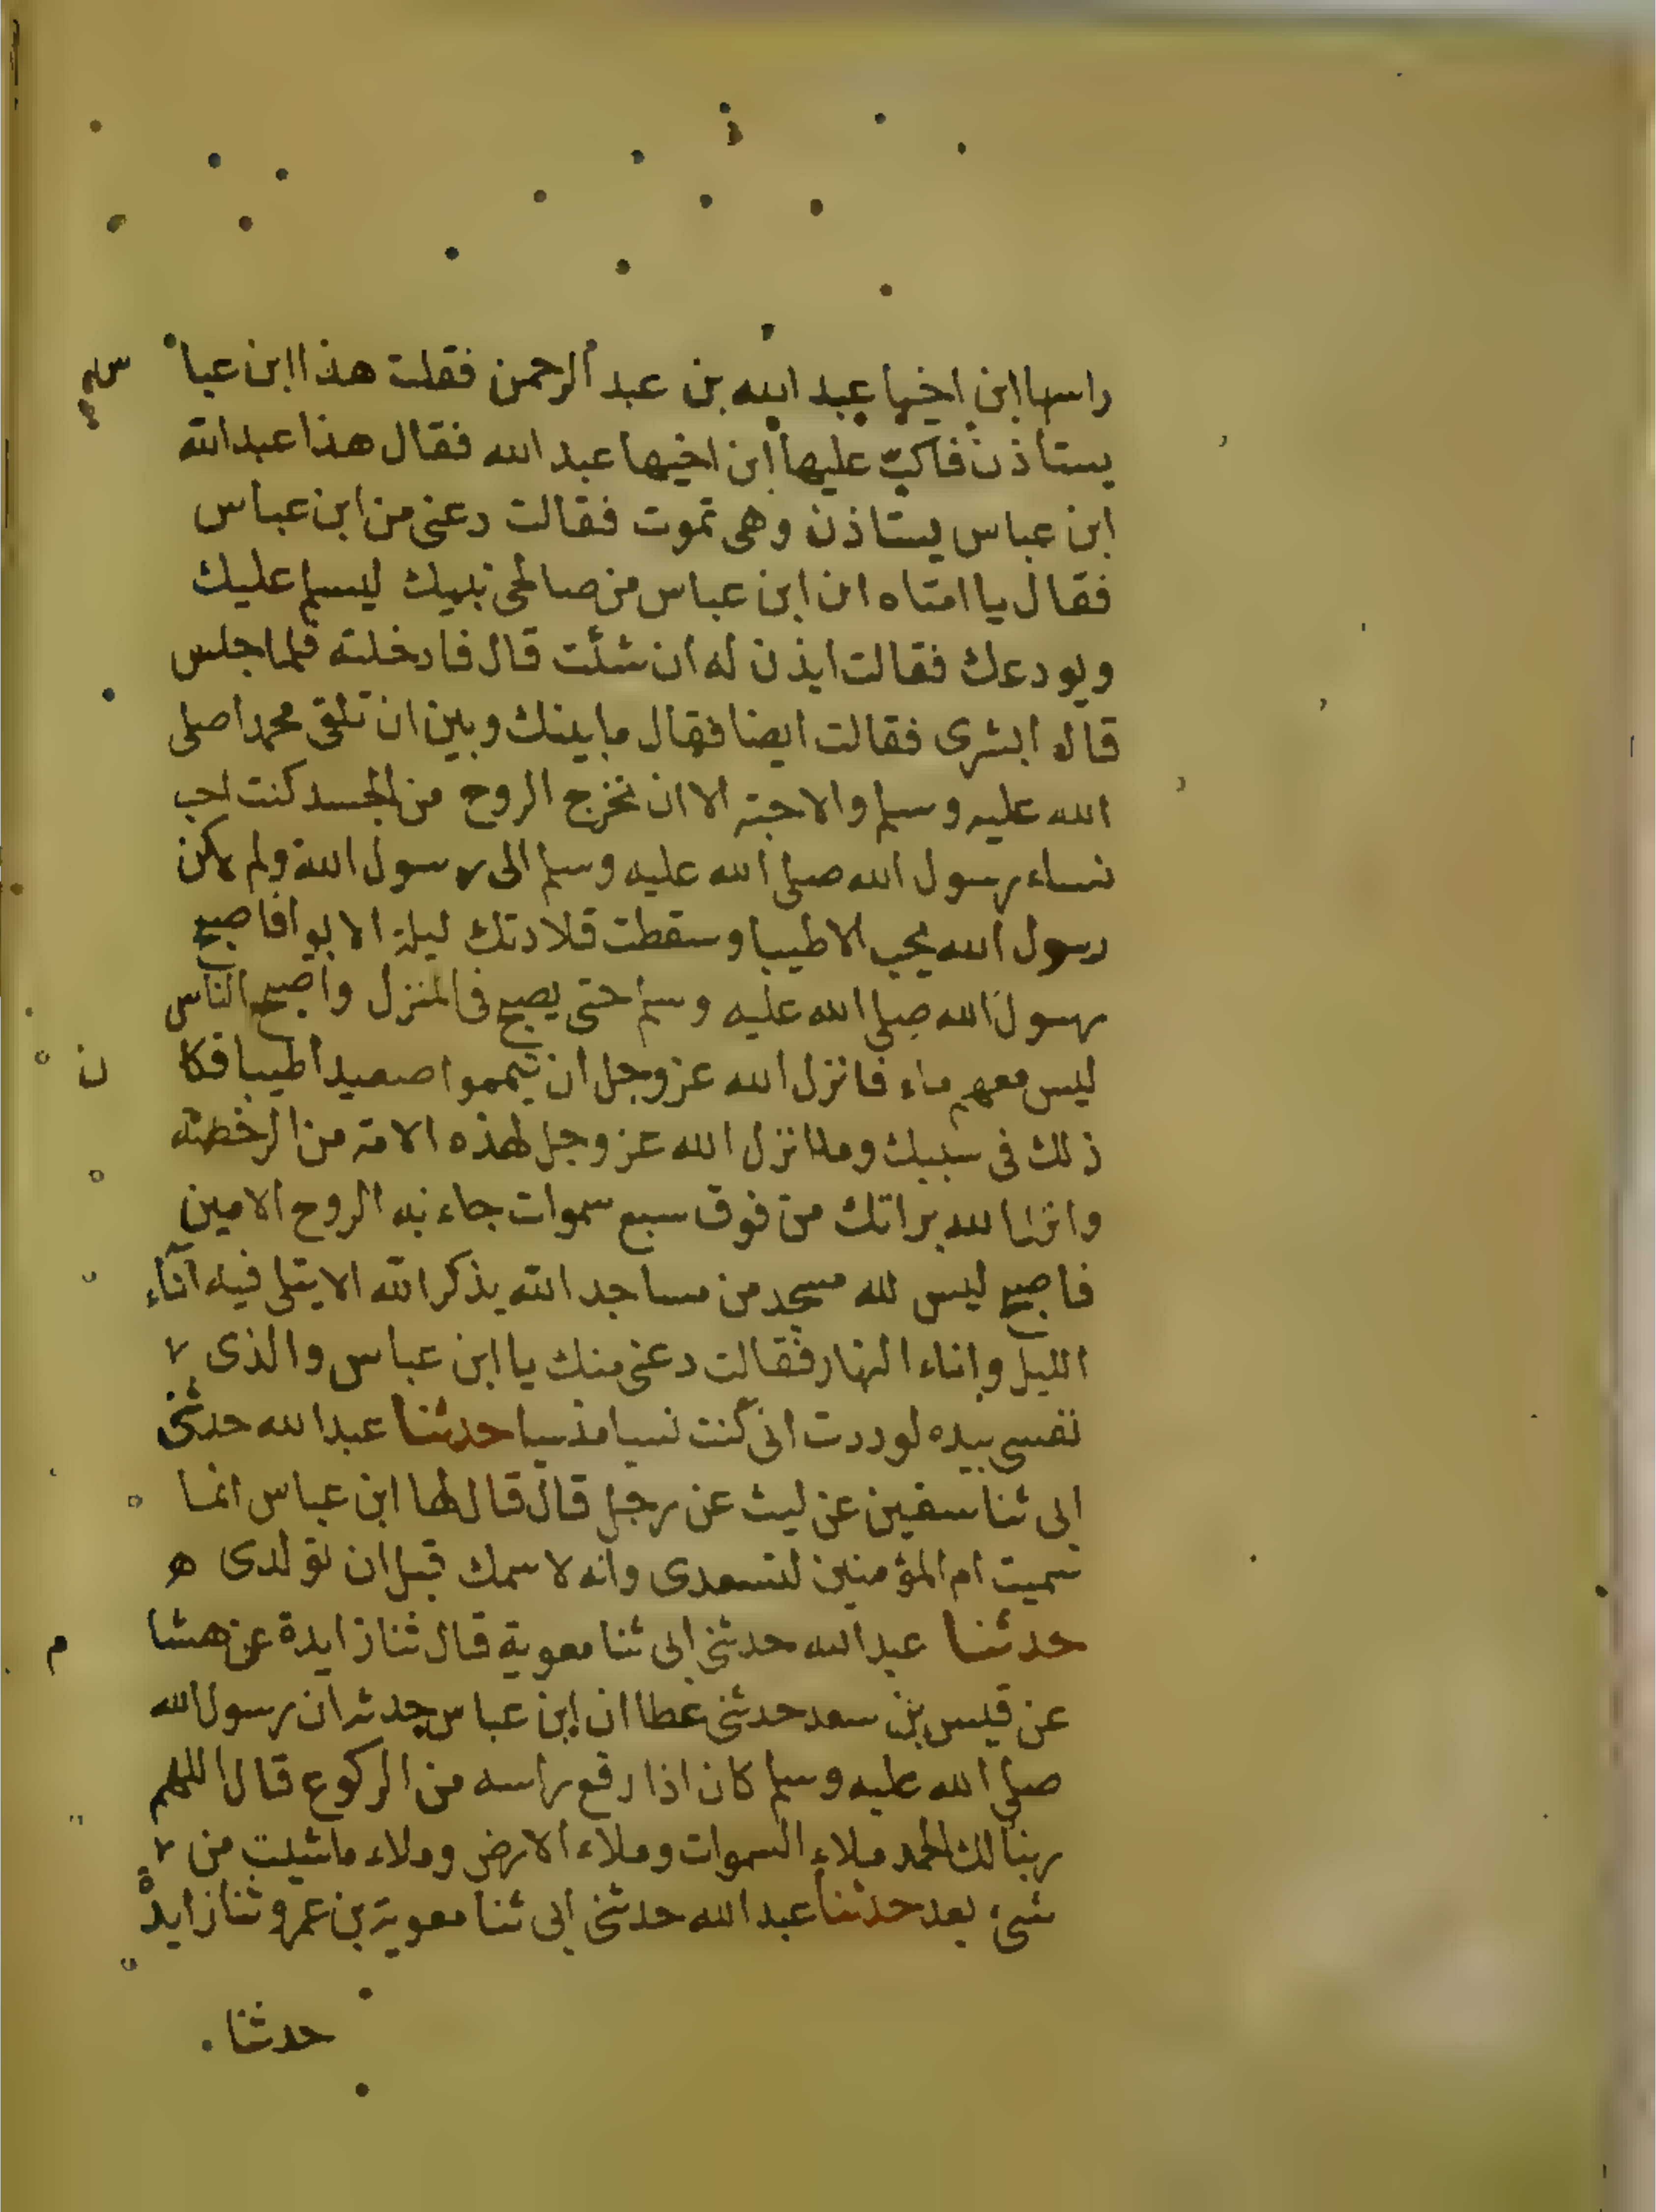 راسها ابن اخيها عبد الله بن عبد الرحمن فقلت هذا ابن عباس
يستاذن فاكب عليها ابن اخيها عبد الله فقال هذا عبد الله
ابن عباس يستاذن وهى تموت فقالت دعنى من ابن عباس
فقال يا امتاه ان ابن عباس من صالحى بنيك ليسلم عليك
ويودعك فقالت ايذن له ان شئت قال فادخلته فلما جلس
قال ابشرى فقالت ايضا فقال ما بينك وبين ان تلقى محمدا صلى
الله عليه وسلم والاحبة الا ان تخرج الروح من الجسد كنت احب
نساء رسول الله صلى الله عليه وسلم الى رسول الله ولم يكن
رسول الله يحب الا طيبا وسقطت قلادتك ليلة الابوا فاصبح
رسول الله صلى الله عليه وسلم حتى يصبح فى المنزل واصبح الناس
ليس معهم ماء فانزل الله عز وجل ان تيمموا صعيدا طيبا فكان
ذلك فى سببك وما انزل الله عز وجل لهذه الامة من الرخصة
وانزل الله براتك من فوق سبع سموات جاء به الروح الامين
فاصبح ليس لله مسجد من مساجد الله يذكر الله الا يتلى فيه آناء
الليل واناء النهار فقالت دعنى منك يا ابن عباس والذى
نفسى بيده لوددت انى كنت نسيا منسيا حدثنا عبد الله حدثنى
ابى ثنا سفين عن ليث عن رجل قال قال لها ابن عباس انما
سميت ام المؤمنين لتسعدى وانه لاسمك قبل ان تولدى ه
حدثنا عبد الله حدثنى ابى ثنا معوية قال ثنا زايدة عن هشام
عن قيس بن سعد حدثنى عطا ان ابن عباس حدثه ان رسول الله
صلى الله عليه وسلم كان اذا رفع راسه من الركوع قال اللهم
ربنا لك الحمد ملاء السموات وملاء الارض وملاء ما شيت من
شىء بعد حدثنا عبد الله حدثنى ابى ثنا معوية بن عمرو ثنا زايدة
حدثنا